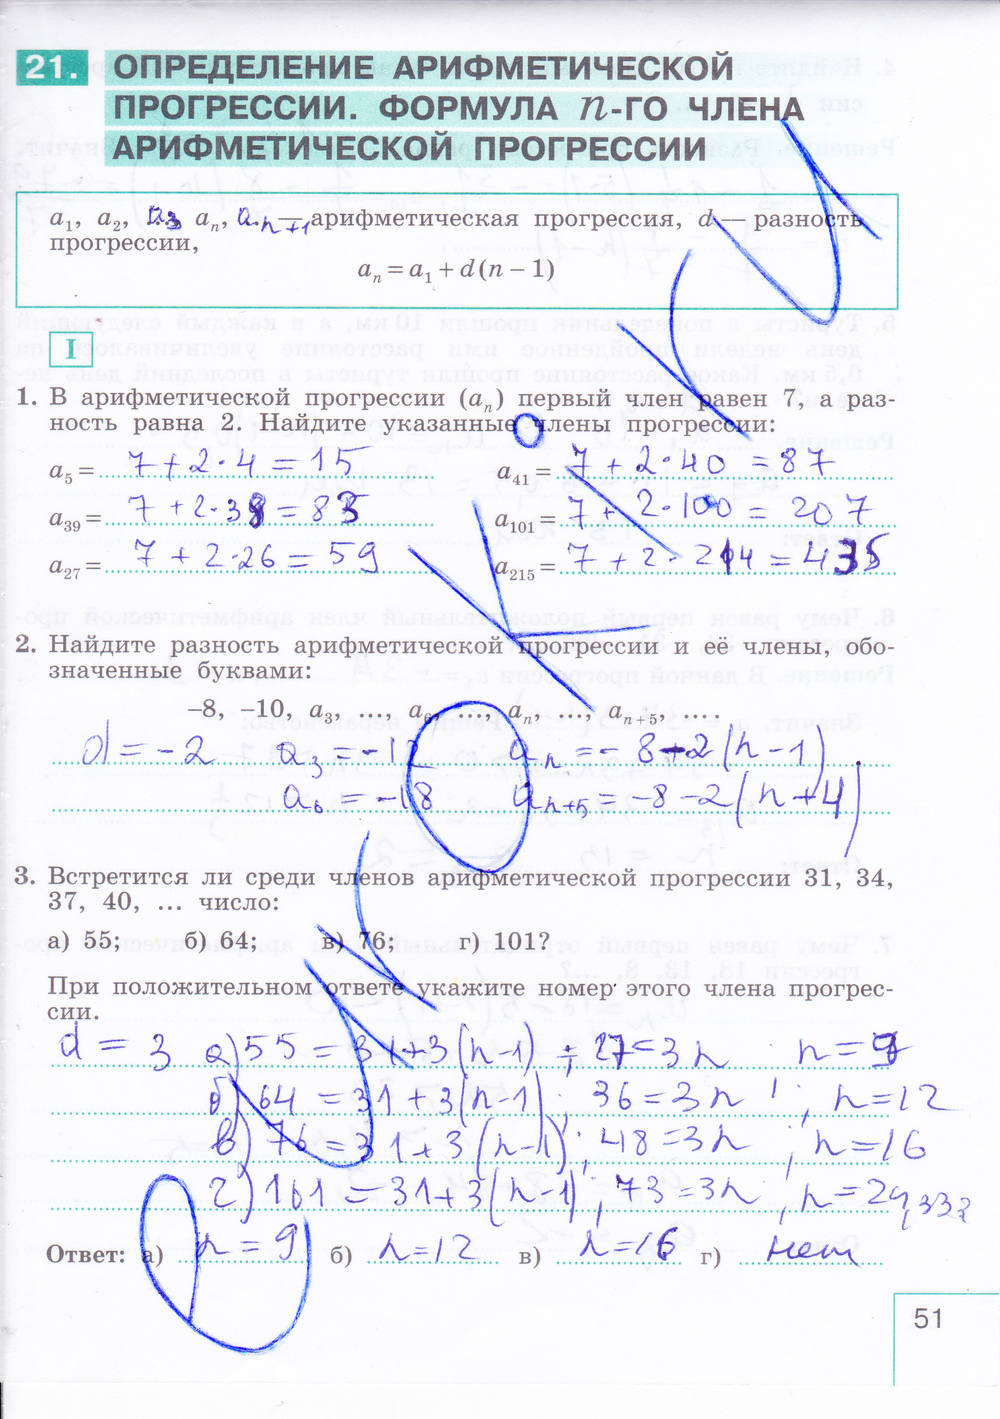 21. ОПРЕДЕЛЕНИЕ АРИФМЕТИЧЕСКОЙ
ПРОГРЕССИИ. ФОРМУЛА n-ГО ЧЛЕНА
АРИФМЕТИЧЕСКОЙ ПРОГРЕССИИ
a₁, a₂, a₃ aₙ, aₙ₊₁ — арифметическая прогрессия, d — разность
прогрессии,
aₙ = a₁ + d(n – 1)
I
1. В арифметической прогрессии (aₙ) первый член равен 7, а раз-
ность равна 2. Найдите указанные члены прогрессии:
a₅ = 7 + 2·4 = 15 a₄₁ = 7 + 2·40 = 87
a₃₉ = 7 + 2·38 = 83 a₁₀₁ = 7 + 2·100 = 207
a₂₇ = 7 + 2·26 = 59 a₂₁₅ = 7 + 2·214 = 435
2. Найдите разность арифметической прогрессии и её члены, обо-
значенные буквами:
–8, –10, a₃, ..., a₆, ..., aₙ, ..., aₙ₊₅, ... .
d = –2 a₃ = –12 aₙ = –8–2(n–1)
a₆ = –18 aₙ₊₅ = –8–2(n+4)
3. Встретится ли среди членов арифметической прогрессии 31, 34,
37, 40, ... число:
а) 55; б) 64; в) 76; г) 101?
При положительном ответе укажите номер этого члена прогрес-
сии.
d = 3 а) 55 = 31+3(n–1) ; 27=3n n = 9
б) 64 = 31+3(n–1) ; 36=3n ; n=12
в) 76 = 31+3(n–1) ; 48=3n ; n=16
г) 101 = 31+3(n–1) , 73=3n , n=24,333
Ответ: а) n = 9 б) n=12 в) n=16 г) нет
51